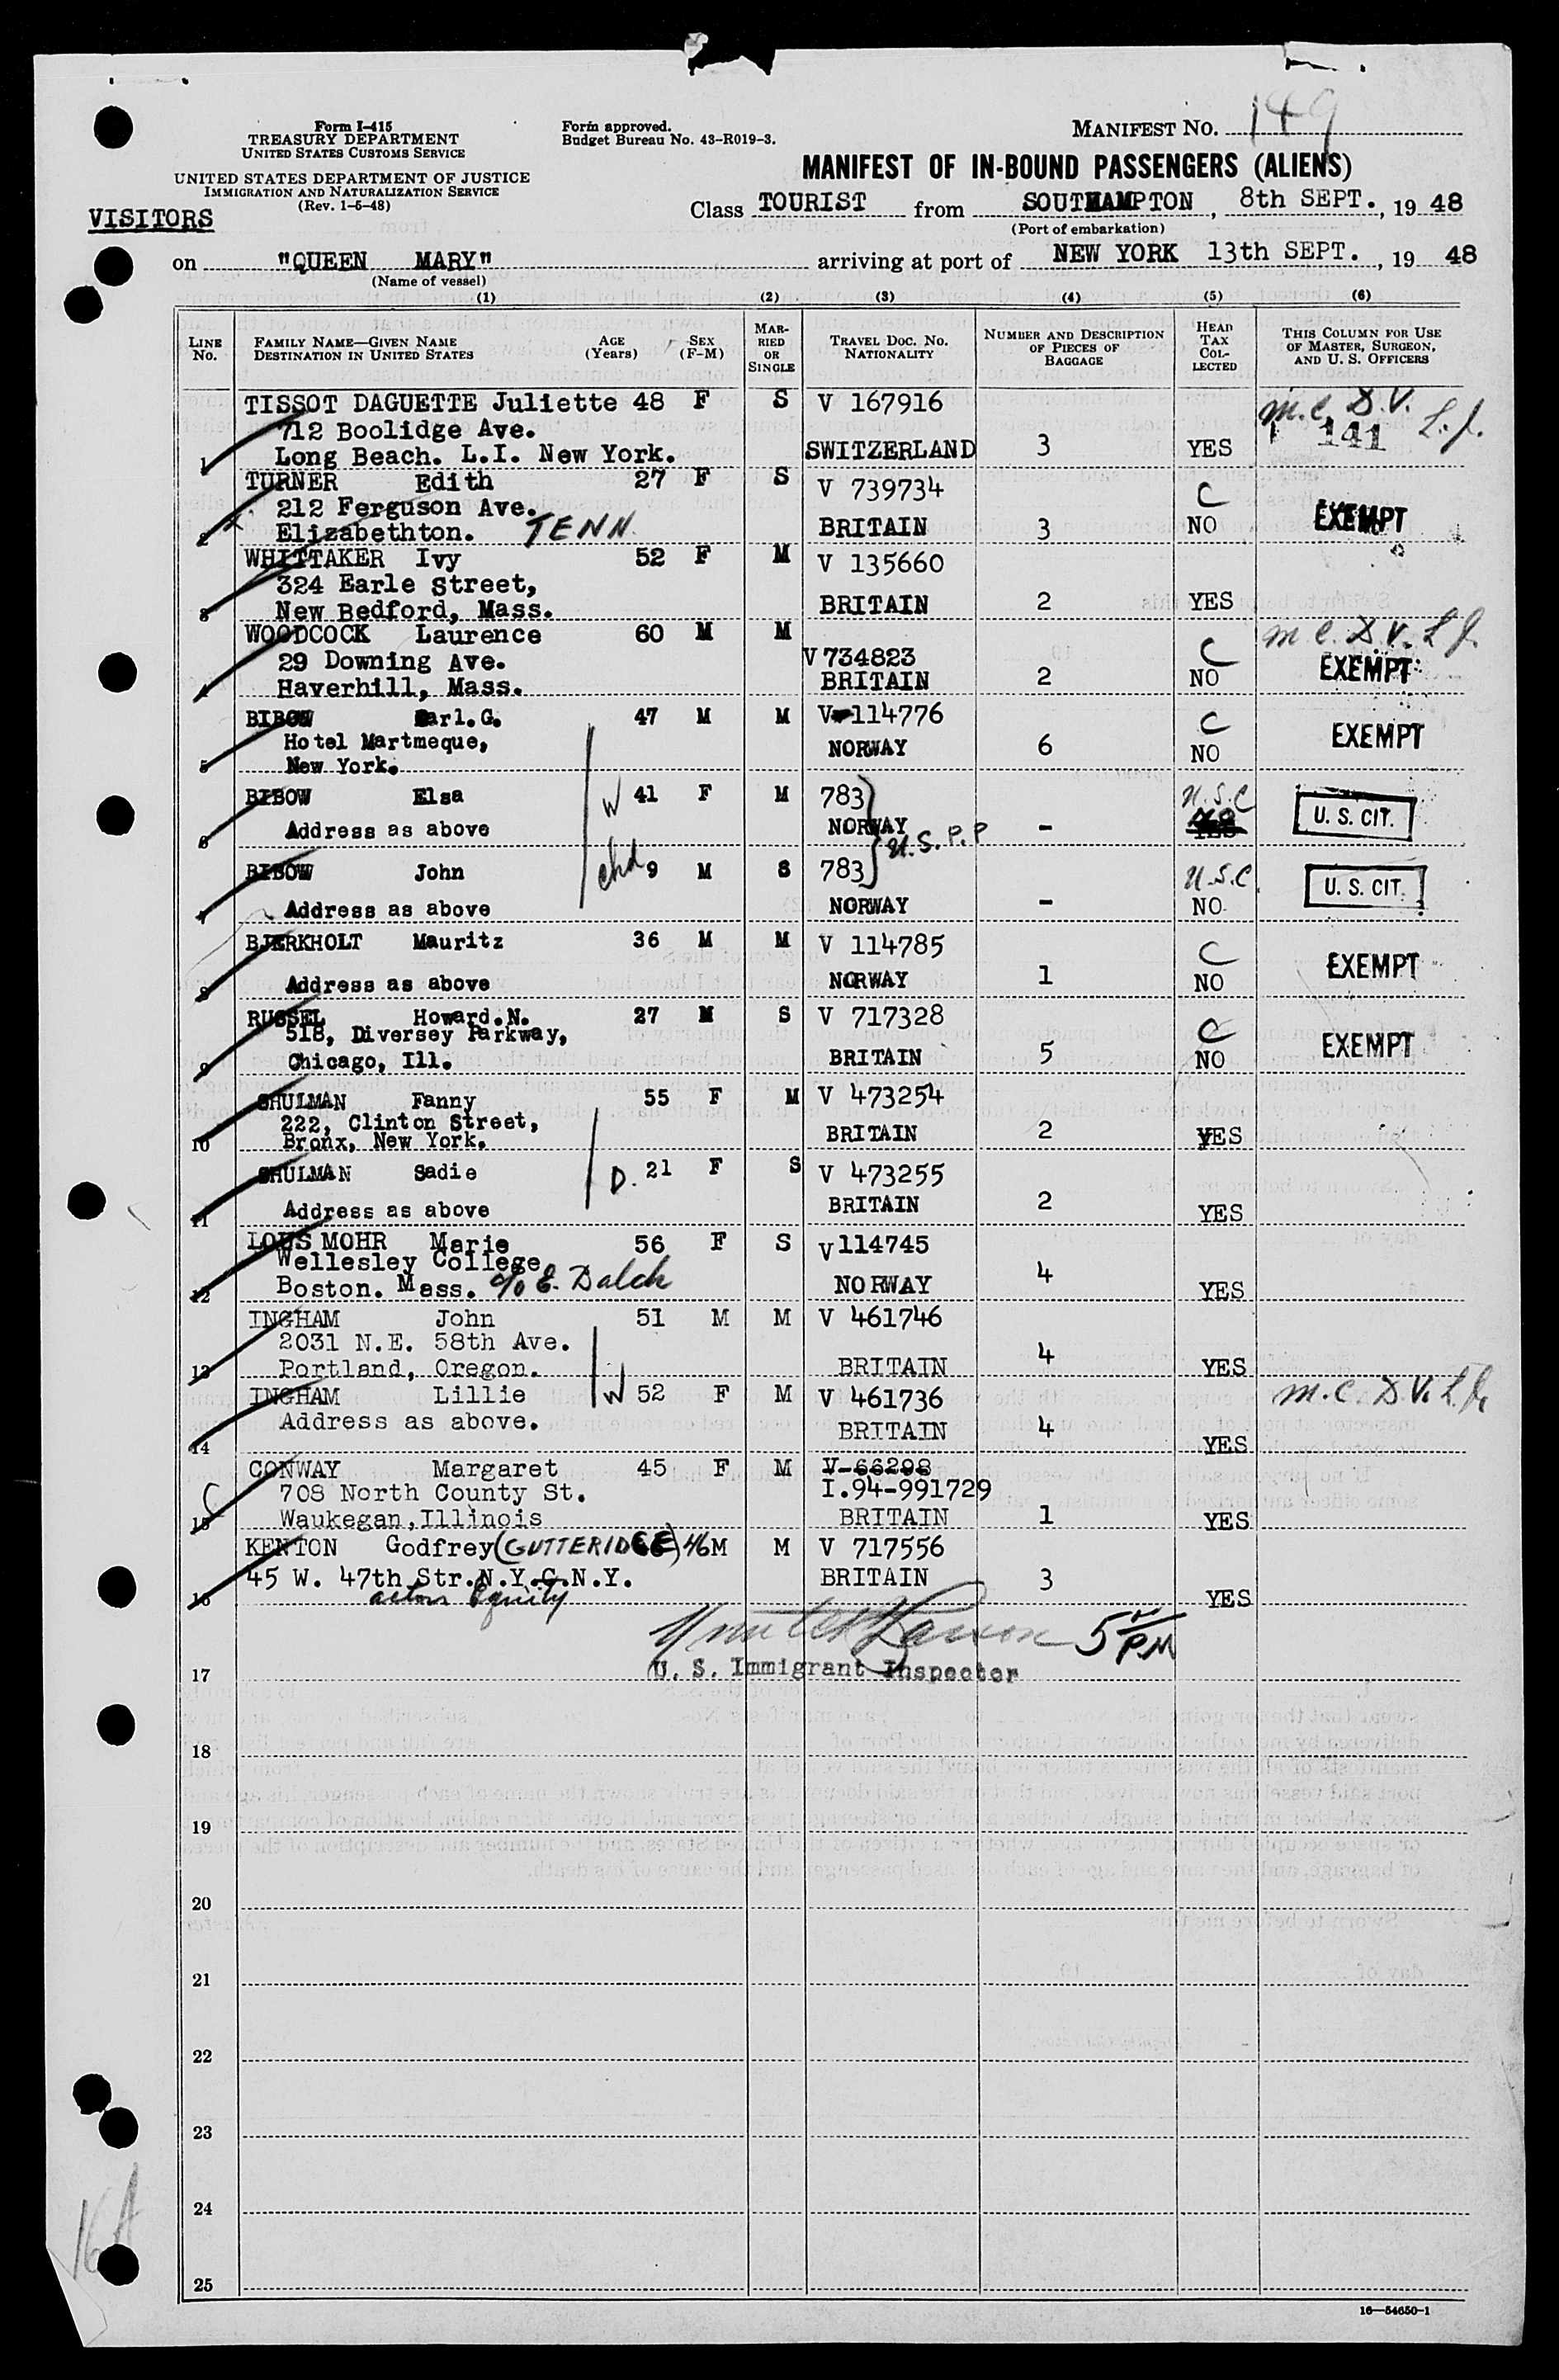 Form I-415
TREASURY DEPARTMENT
UNITED STATES CUSTOMS SERVICE
UNITED STATES DEPARTMENT OF JUSTICE
IMMIGRATION AND NATURALIZATION SERVICE
(Rev. 1-5-48)
Form approved.
Budget Bureau No. 43-R019-3.
MANIFEST NO. 149
MANIFEST OF IN-BOUND PASSENGERS (ALIENS)
VISITORS
Class TOURIST from SOUTHAMPTON, 8th SEPT., 19 48
(Port of embarkation)
on "QUEEN MARY" arriving at port of NEW YORK 13th SEPT., 19 48
(Name of vessel)
(1) (2) (3) (4) (5) (6)
LINE No.
FAMILY NAME—GIVEN NAME
DESTINATION IN UNITED STATES
AGE (Years)
SEX (F-M)
MARRIED OR SINGLE
TRAVEL DOC. NO.
NATIONALITY
NUMBER AND DESCRIPTION OF PIECES OF BAGGAGE
HEAD TAX COLLECTED
THIS COLUMN FOR USE OF MASTER, SURGEON, AND U. S. OFFICERS
TISSOT DAGUETTE Juliette 48 F S V 167916 m.c. D.V. L.J.
712 Boolidge Ave. 141
1 Long Beach. L.I. New York. SWITZERLAND 3 YES
TURNER Edith 27 F S V 739734 C
212 Ferguson Ave. EXEMPT
2 x Elizabethton. TENN. BRITAIN 3 NO
WHITTAKER Ivy 52 F M V 135660
324 Earle Street,
3 New Bedford, Mass. BRITAIN 2 YES
WOODCOCK Laurence 60 M M m c. D.V. L J.
29 Downing Ave. V 734823 C EXEMPT
4 Haverhill, Mass. BRITAIN 2 NO
BIBOW Carl.G. 47 M M V 114776 C
Hotel Martmeque, NORWAY 6 NO EXEMPT
5 New York.
BIBOW Elsa W 41 F M 783 U.S.C
6 Address as above NORWAY - U. S. CIT.
U.S.P.P
BIBOW John chd 9 M S 783 U.S.C. U. S. CIT.
7 Address as above NORWAY - NO
BJERKHOLT Mauritz 36 M M V 114785 C EXEMPT
8 Address as above NORWAY 1 NO
RUSSEL Howard.N. 27 M S V 717328 C
518, Diversey Parkway, EXEMPT
9 Chicago, Ill. BRITAIN 5 NO
SHULMAN Fanny 55 F M V 473254
222, Clinton Street,
10 Bronx, New York. BRITAIN 2 YES
SHULMAN Sadie D. 21 F S V 473255
11 Address as above BRITAIN 2 YES
LOUS MOHR Marie 56 F S V114745
Wellesley College
12 Boston. Mass. c/o E. Dalch NORWAY 4 YES
INGHAM John 51 M M V 461746
2031 N.E. 58th Ave.
13 Portland, Oregon. BRITAIN 4 YES
INGHAM Lillie W 52 F M V 461736 m.c. D.V. L.J.
Address as above. BRITAIN 4
14 YES
CONWAY Margaret 45 F M V-66298
708 North County St. I.94-991729
15 Waukegan, Illinois BRITAIN 1 YES
KENTON Godfrey (GUTTERIDGE) 46 M M V 717556
45 W. 47th Str.N.Y.C.N.Y. BRITAIN 3
16 actors Equity YES
5 PM
17 U. S. Immigrant Inspector
18
19
20
21
22
23
24
25
16—54650-1
16A